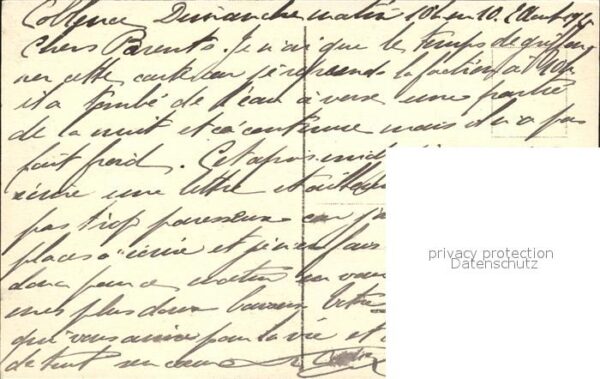 Dimanche matin 10h 10. 2 Aout 1915
Chers Parents. Je n'ai que le temps de griffon
ner cette carte car je reprends la faction à
il a tombé de l'eau à verse une partie
de la nuit et ça continue mais il n'a pas
fait froid. Cet après midi
écrire une lettre
pas trop paresseux car j'ai
places à écrire et j'en fais
donc pour ce matin en vous
mes plus doux baisers Votre
qui vous aime pour la vie et
de tout son coeur
privacy protection
Datenschutz